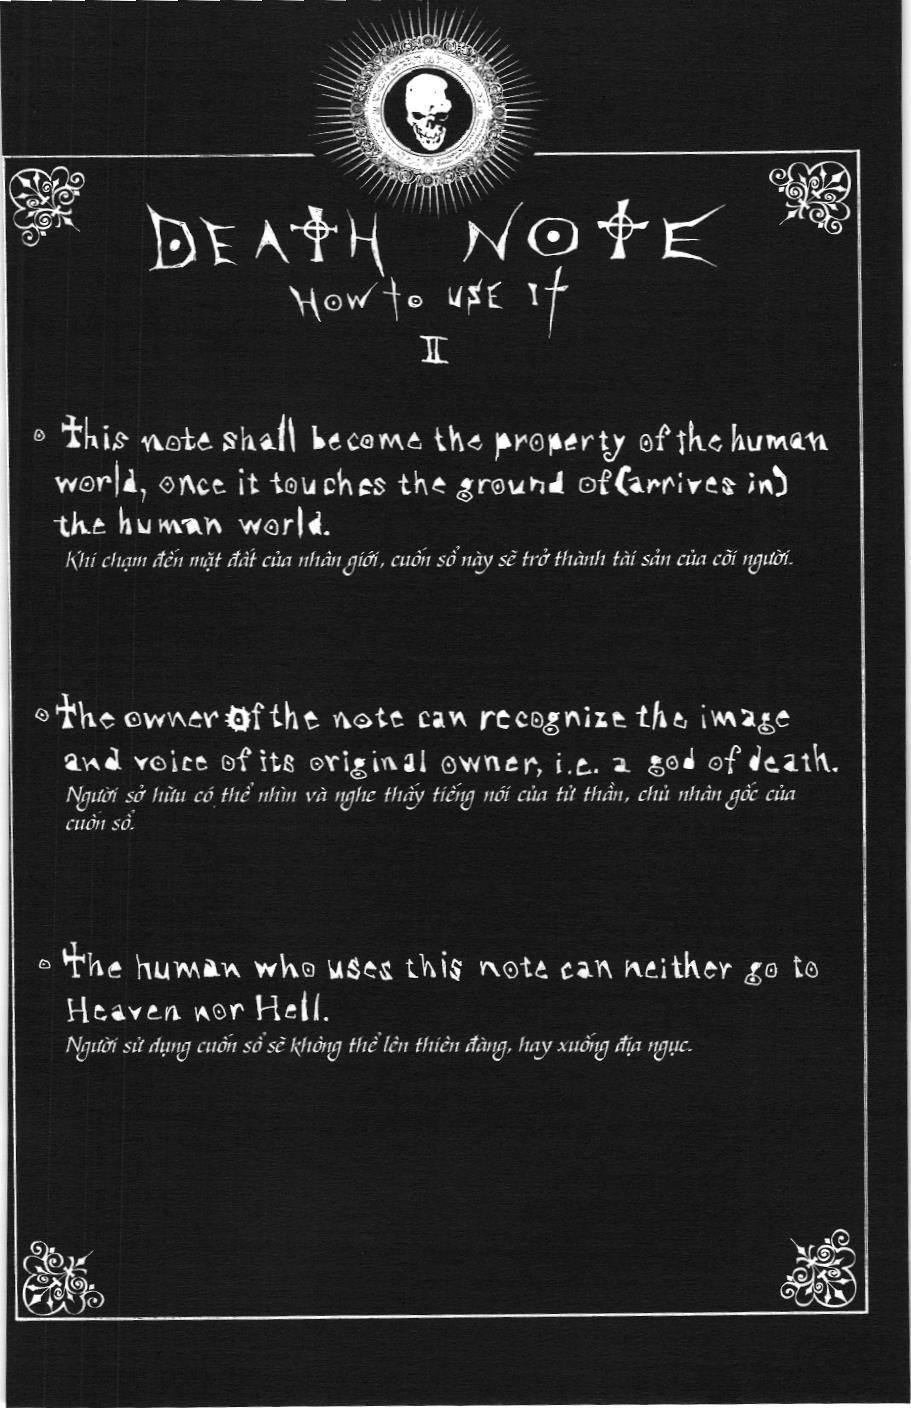 DEATH NOTE
How to use it
II
This note shall become the property of the human
world, once it touches the ground of (arrives in)
the human world.
Khi chạm đến mặt đất của nhân giới, cuốn sổ này sẽ trở thành tài sản của cõi người.
The owner of the note can recognize the image
and voice of its original owner, i.e. a god of death.
Người sở hữu có thể nhìn và nghe thấy tiếng nói của tử thần, chủ nhân gốc của
cuốn sổ.
The human who uses this note can neither go to
Heaven nor Hell.
Người sử dụng cuốn sổ sẽ không thể lên thiên đàng, hay xuống địa ngục.